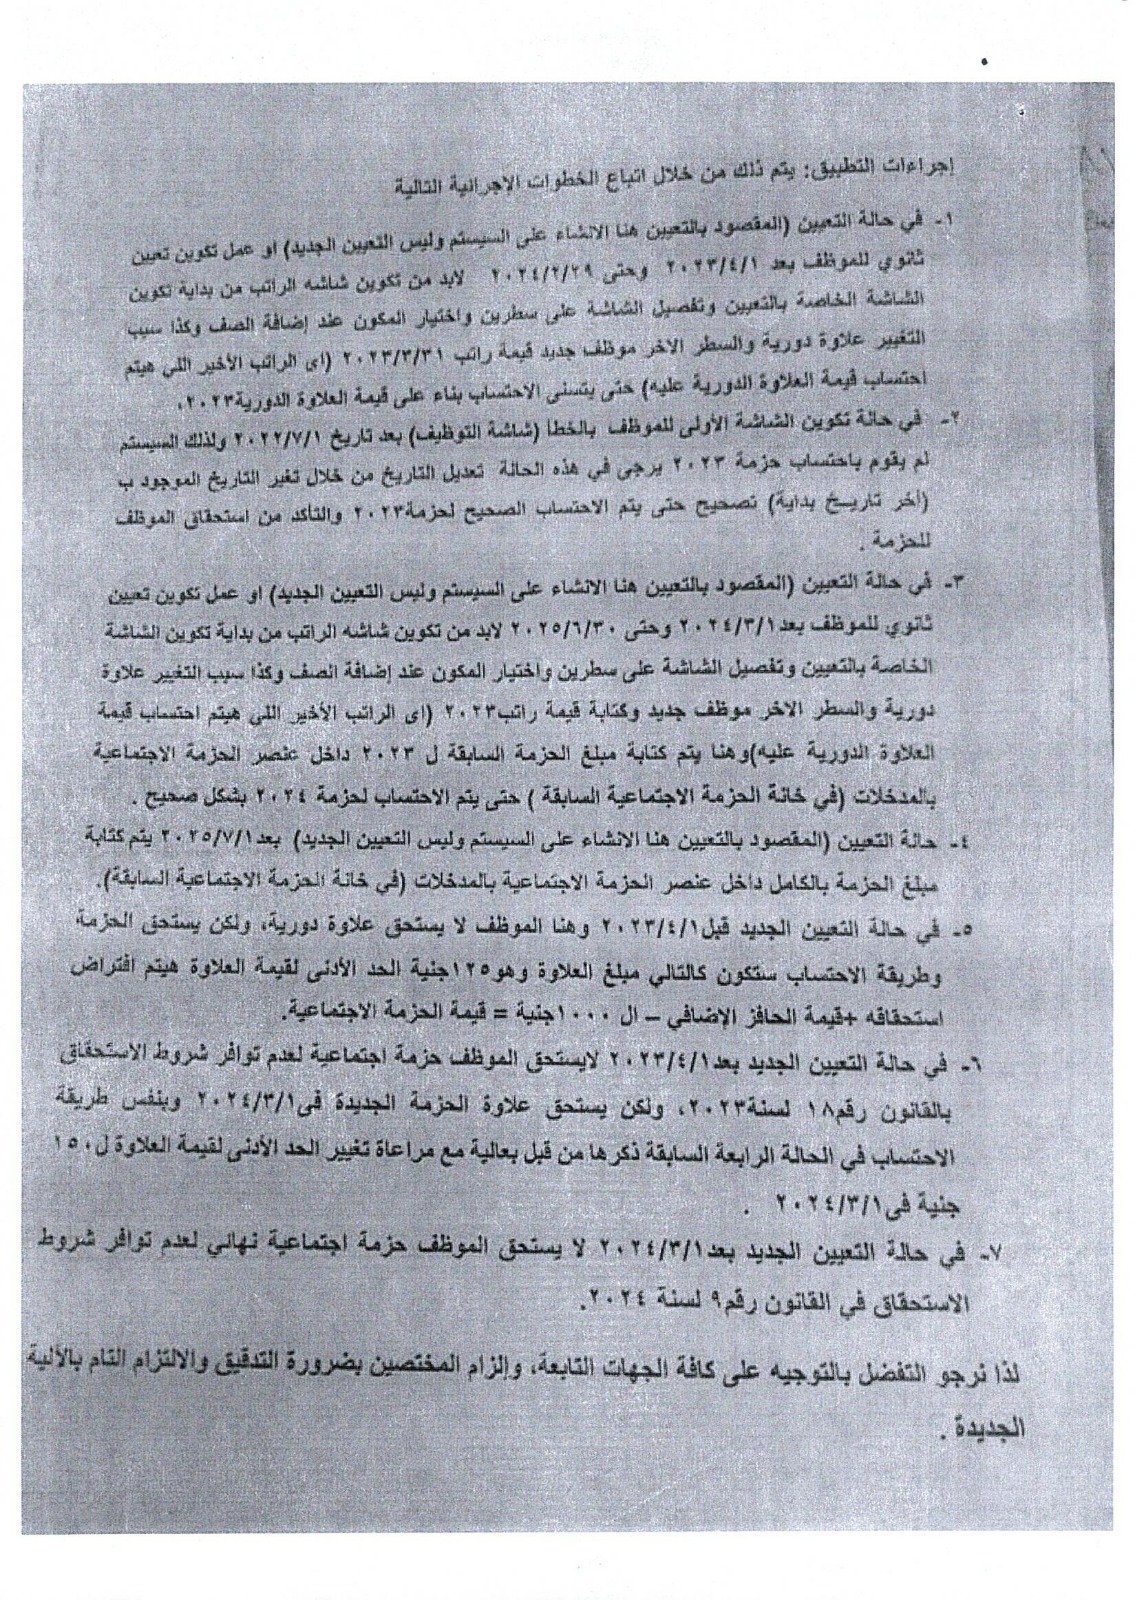 إجراءات التطبيق: يتم ذلك من خلال اتباع الخطوات الإجرائية التالية
١- في حالة التعيين (المقصود بالتعيين هنا الانشاء على السيستم وليس التعيين الجديد) او عمل تكوين تعيين
ثانوي للموظف بعد ٢٠٢٣/٤/١ وحتى ٢٠٢٤/٢/٢٩ لابد من تكوين شاشه الراتب من بداية تكوين
الشاشة الخاصة بالتعيين وتفصيل الشاشة على سطرين واختيار المكون عند إضافة الصف وكذا سبب
التغيير علاوة دورية والسطر الاخر موظف جديد قيمة راتب ٢٠٢٣/٣/٣١ (اى الراتب الأخير اللي هيتم
احتساب قيمة العلاوة الدورية عليه) حتى يتسنى الاحتساب بناء على قيمة العلاوة الدورية٢٠٢٣.
٢- في حالة تكوين الشاشة الأولى للموظف بالخطا (شاشة التوظيف) بعد تاريخ ٢٠٢٢/٧/١ ولذلك السيستم
لم يقوم باحتساب حزمة ٢٠٢٣ يرجى في هذه الحالة تعديل التاريخ من خلال تغير التاريخ الموجود ب
(أخر تاريخ بداية) تصحيح حتى يتم الاحتساب الصحيح لحزمة٢٠٢٣ والتأكد من استحقاق الموظف
للحزمة .
٣- في حالة التعيين (المقصود بالتعيين هنا الانشاء على السيستم وليس التعيين الجديد) او عمل تكوين تعيين
ثانوي للموظف بعد٢٠٢٤/٣/١ وحتى ٢٠٢٥/٦/٣٠ لابد من تكوين شاشه الراتب من بداية تكوين الشاشة
الخاصة بالتعيين وتفصيل الشاشة على سطرين واختيار المكون عند إضافة الصف وكذا سبب التغيير علاوة
دورية والسطر الاخر موظف جديد وكتابة قيمة راتب٢٠٢٣ (اى الراتب الأخير اللي هيتم احتساب قيمة
العلاوة الدورية عليه)وهنا يتم كتابة مبلغ الحزمة السابقة ل ٢٠٢٣ داخل عنصر الحزمة الاجتماعية
بالمدخلات (في خانة الحزمة الاجتماعية السابقة ) حتى يتم الاحتساب لحزمة ٢٠٢٤ بشكل صحيح .
٤- حالة التعيين (المقصود بالتعيين هنا الانشاء على السيستم وليس التعيين الجديد) بعد٢٠٢٥/٧/١ يتم كتابة
مبلغ الحزمة بالكامل داخل عنصر الحزمة الاجتماعية بالمدخلات (في خانة الحزمة الاجتماعية السابقة).
٥- في حالة التعيين الجديد قبل٢٠٢٣/٤/١ وهنا الموظف لا يستحق علاوة دورية، ولكن يستحق الحزمة
وطريقة الاحتساب ستكون كالتالي مبلغ العلاوة وهو١٢٥جنية الحد الأدنى لقيمة العلاوة هيتم افتراض
استحقاقه +قيمة الحافز الإضافي – ال ١٠٠٠جنية = قيمة الحزمة الاجتماعية.
٦- في حالة التعيين الجديد بعد٢٠٢٣/٤/١ لايستحق الموظف حزمة اجتماعية لعدم توافر شروط الاستحقاق
بالقانون رقم١٨ لسنة٢٠٢٣، ولكن يستحق علاوة الحزمة الجديدة فى٢٠٢٤/٣/١ وبنفس طريقة
الاحتساب في الحالة الرابعة السابقة ذكرها من قبل بعالية مع مراعاة تغيير الحد الأدنى لقيمة العلاوة ل١٥٠
جنية فى٢٠٢٤/٣/١ .
٧- في حالة التعيين الجديد بعد٢٠٢٤/٣/١ لا يستحق الموظف حزمة اجتماعية نهائي لعدم توافر شروط
الاستحقاق في القانون رقم٩ لسنة ٢٠٢٤.
لذا نرجو التفضل بالتوجيه على كافة الجهات التابعة، وإلزام المختصين بضرورة التدقيق والالتزام التام بالألية
الجديدة .